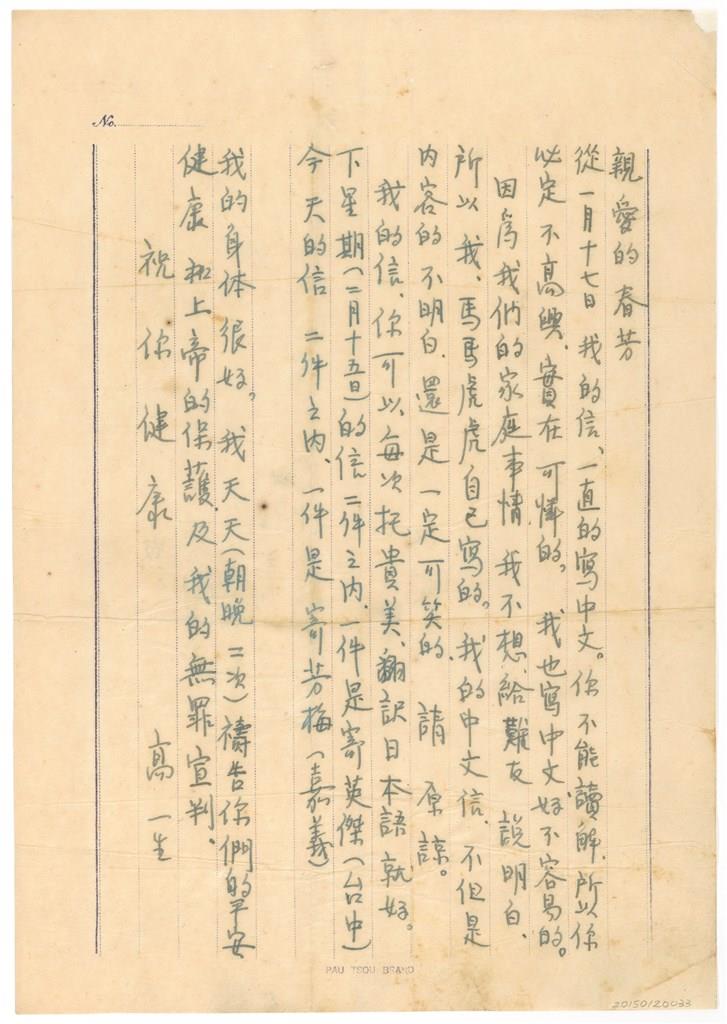 No.
親愛的春芳
從一月十七日我的信、一直的寫中文。你不能讀解、所以你
必定不高興、實在可憐的。我也寫中文、好不容易的。
因為我們的家庭事情、我不想給難友説明白、
所以我、馬馬虎虎自己寫的。我的中文信、不但是
内容的不明白、還是一定可笑的、請原諒。
我的信、你可以每次托貴美、翻訳日本語就好。
下星期(二月十五日)的信二件之内、一件是寄英傑(台中)
今天的信二件之内、一件是寄芳梅(嘉義)
我的身体很好。我天天(朝晩二次)禱告你們的平安
健康和上帝的保護、及我的無罪宣判、
祝你健康
高一生
PAU TSOU BRAND
20150120033